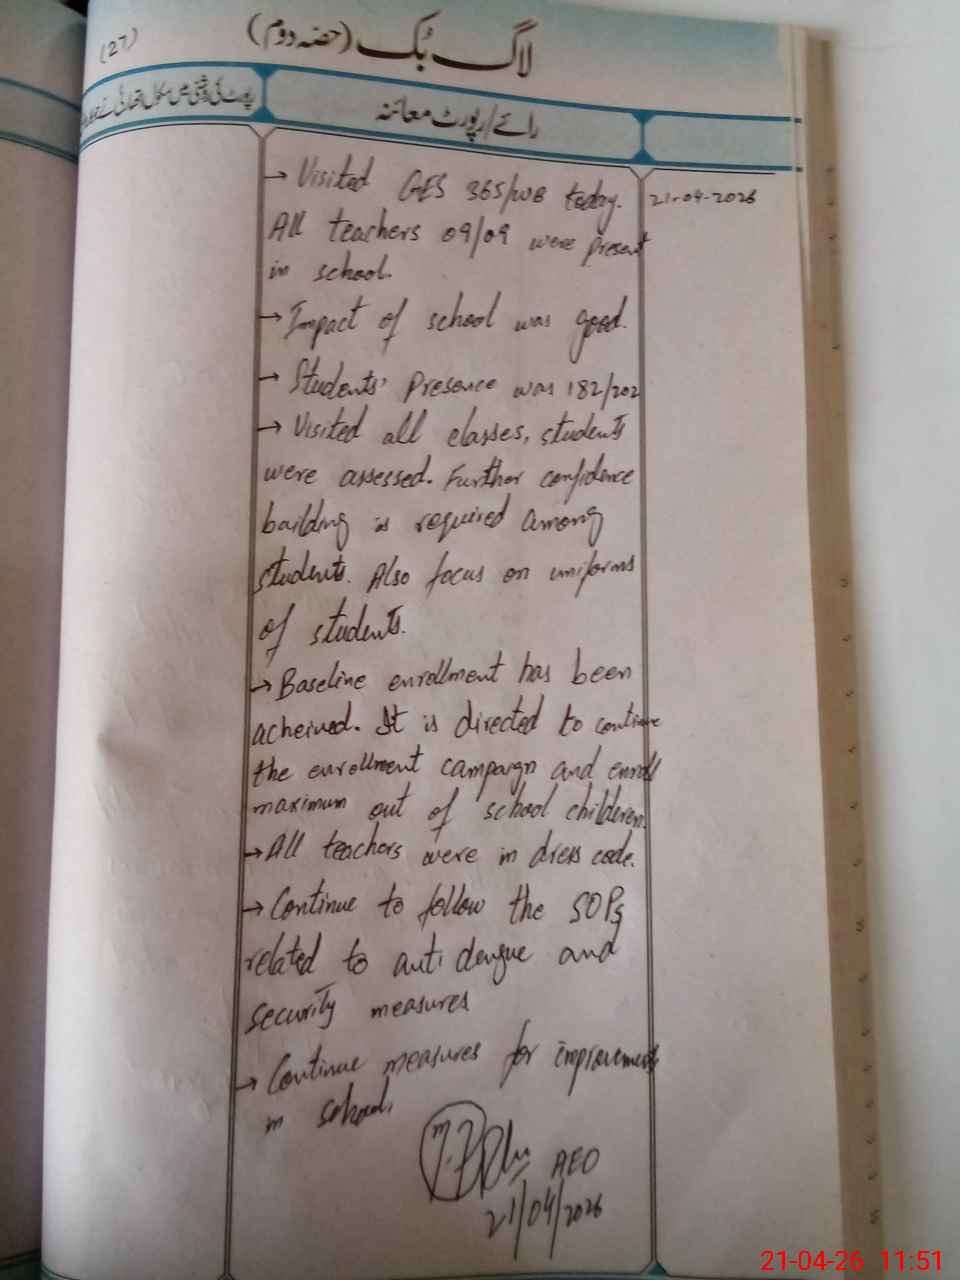 (27)
لاگ بُک (حصّہ دوم)
رائے/رپورٹ معائنہ
→ Visited GES 365/WB today.
21-04-2026
All teachers 09/09 were present
in school.
→ Impact of school was good.
→ Students' Presence was 182/202
→ Visited all classes, students
were assessed. Further confidence
building is required among
students. Also focus on uniforms
of students.
→ Baseline enrollment has been
acheived. It is directed to continue
the enrollment campaign and enroll
maximum out of school childeren.
→ All teachers were in dress code.
→ Continue to follow the SOPs
related to anti dengue and
security measures
→ Continue measures for improvement
in school.
AEO
21/04/2026
21-04-26 11:51